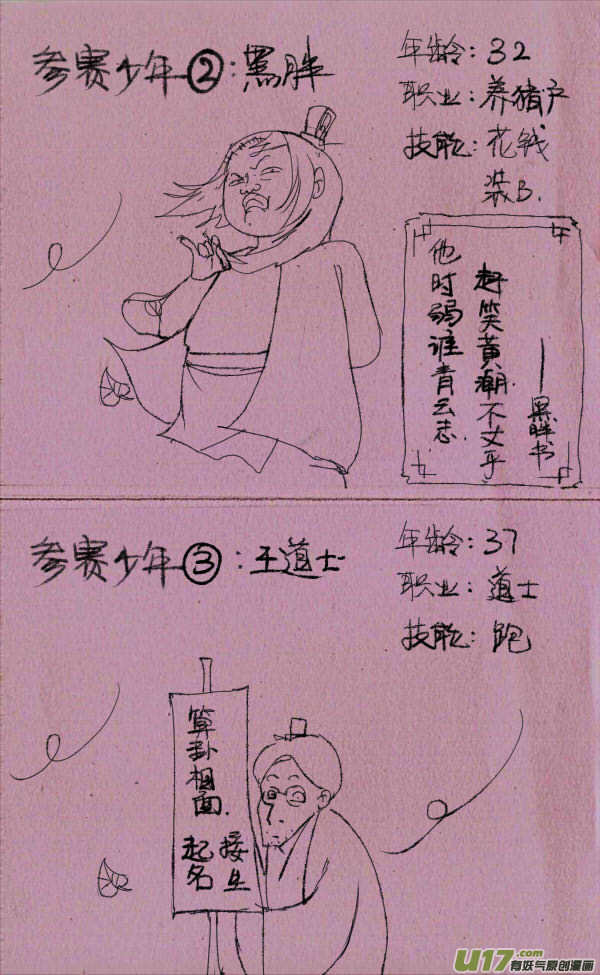 参赛少年②:黑胖
年龄:32
职业:养猪户
技能:花钱
装B.
他时弱谁青云志.
赶笑黄潮不丈乎
——黑胖书
参赛少年③:王道士
年龄:37
职业:道士
技能:跑
算卦相面.
起名
接生
U17.com
有妖气原创漫画